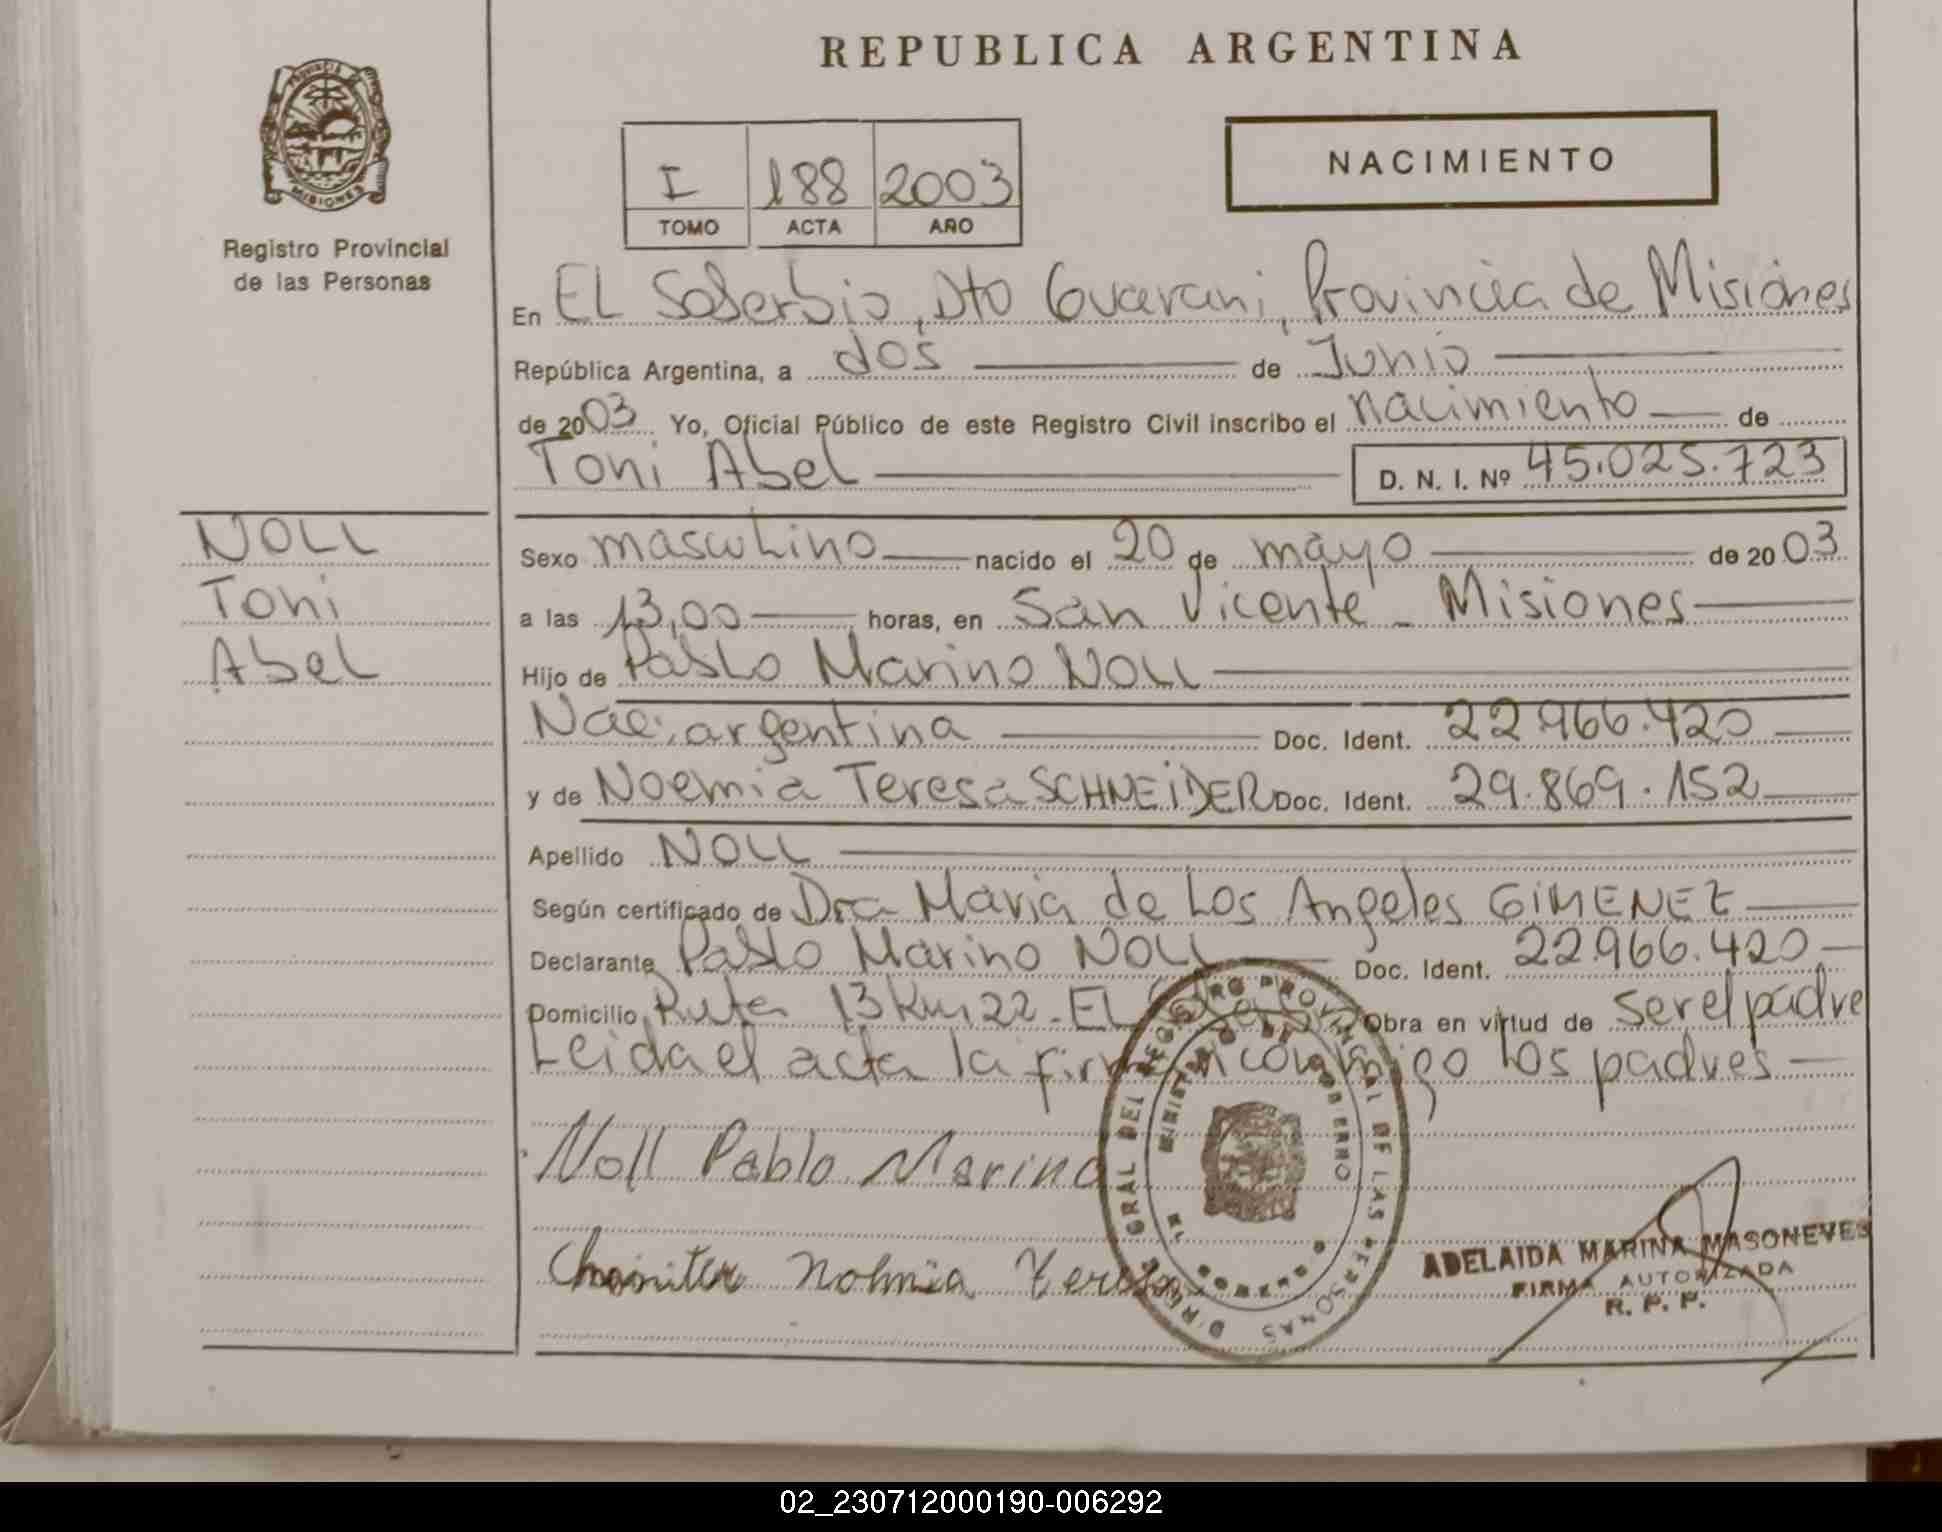 REPUBLICA ARGENTINA
PROVINCIA DE MISIONES
Registro Provincial
de las Personas
I 188 2003
TOMO ACTA AÑO
NACIMIENTO
En EL Soberbio, Dto Guarani, Provincia de Misiones
República Argentina, a dos de Junio
de 2003 Yo, Oficial Público de este Registro Civil inscribo el nacimiento de
Toni Abel D. N. I. Nº 45.025.723
NOLL
Toni
Abel
Sexo masculino nacido el 20 de mayo de 2003
a las 13,00 horas, en San Vicente - Misiones
Hijo de Pablo Marino NOLL
Nac. argentina Doc. Ident. 22.966.420
y de Noemia Teresa SCHNEIDER Doc. Ident. 29.869.152
Apellido NOLL
Según certificado de Dra Maria de Los Angeles GIMENEZ
Declarante Pablo Marino NOLL Doc. Ident. 22.966.420
Domicilio Ruta 13 Km 22 - EL Soberbio Obra en virtud de ser el padre
Leida el acta la firman conmigo los padres
Noll Pablo Marino
nohmia Teresa
DIREC. GRAL DEL REGISTRO PROVINCIAL DE LAS PERSONAS
MINISTERIO DE GOBIERNO
ADELAIDA MARINA MASONEVES
FIRMA AUTORIZADA
R. P. P.
02_230712000190-006292